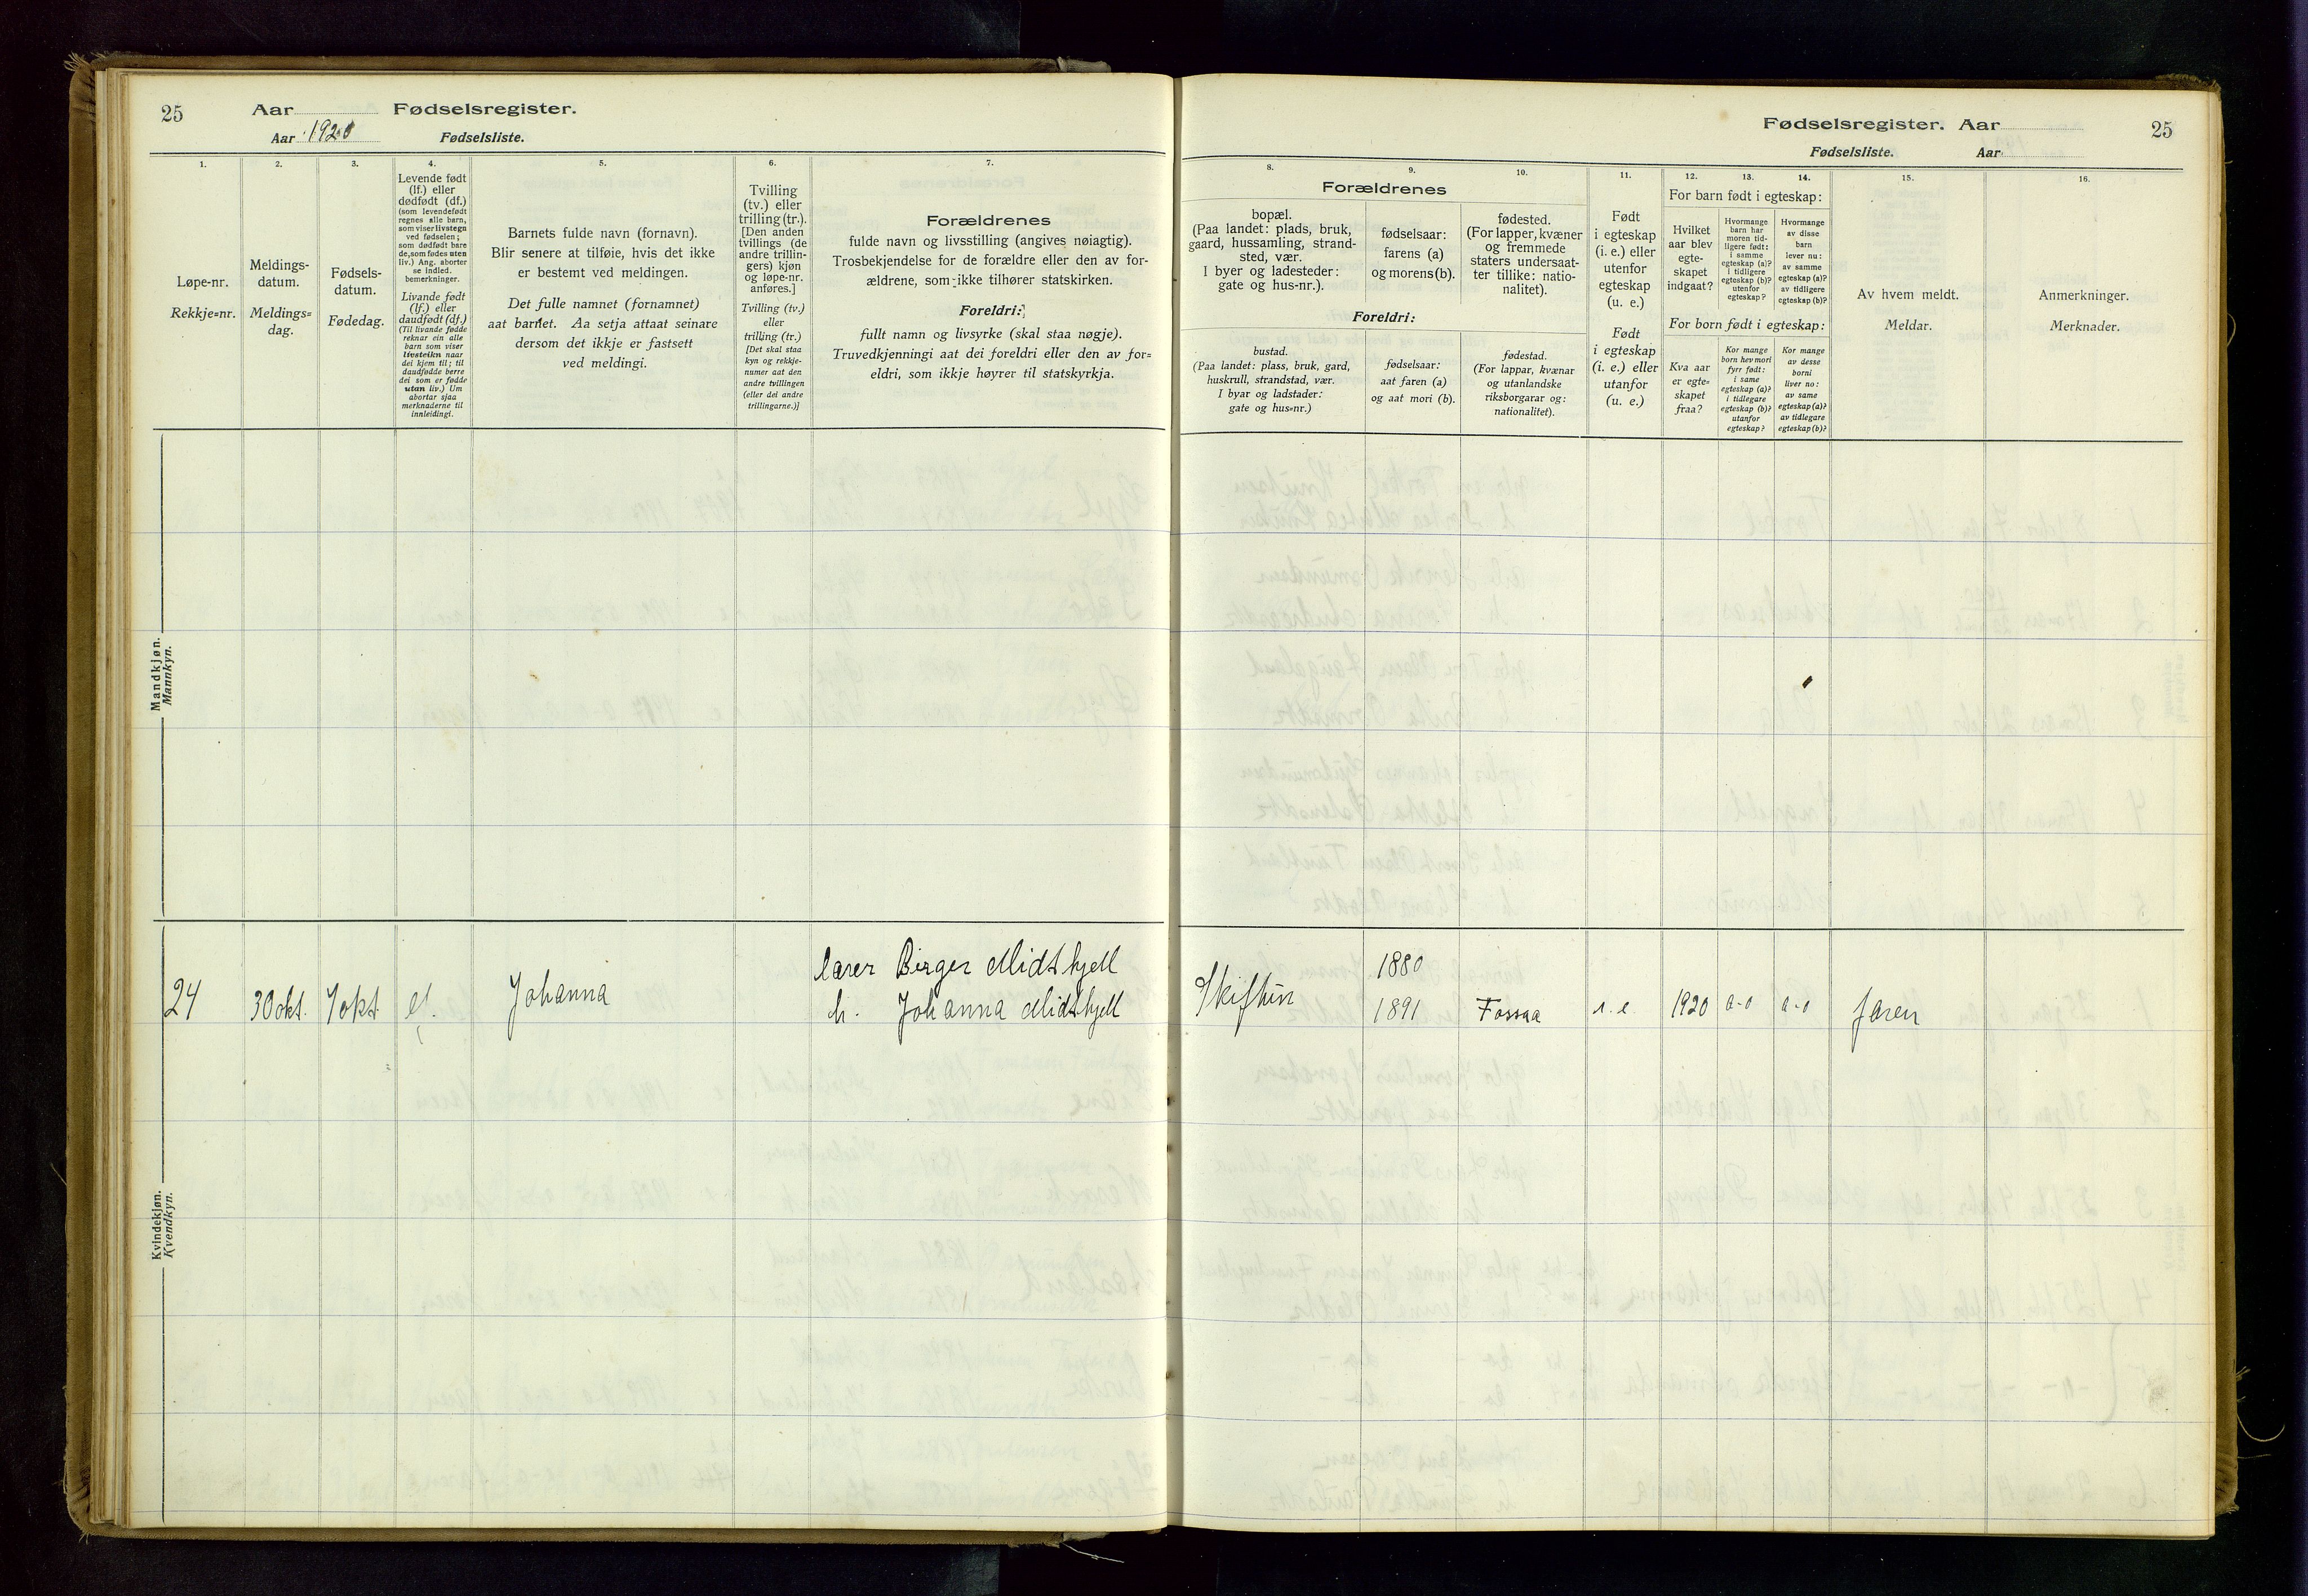 25
Aar
Fødselsregister.
Aar 1920
Fødselsliste.
1.
Løpe-nr.
Rekkje-nr.
2.
Meldings-
datum.
Meldings-
dag.
3.
Fødsels-
datum.
Fødedag.
4.
Levende født
(lf.) eller
dødfødt (df.)
(som levendefødt
regnes alle barn,
som viser livstegn
ved fødselen;
som dødfødt bare
de, som fødes uten
liv.) Ang. aborter
se indled.
bemerkninger.
Livande født
(lf.) eller
daudfødt (df.)
(Til livande fødde
reknar ein alle
barn som viser
livsteikn naar
dei kjem til; til
daudfødde berre
dei som er fødde
utan liv.) Um
abortar sjaa
merknaderne til
innleidingi.
5.
Barnets fulde navn (fornavn).
Blir senere at tilføie, hvis det ikke
er bestemt ved meldingen.
Det fulle namnet (fornamnet)
aat barnet. Aa setja attaat seinare
dersom det ikkje er fastsett
ved meldingi.
6.
Tvilling
(tv.) eller
trilling (tr.).
[Den anden
tvillings (de
andre trillin-
gers) kjøn
og løpe-nr.
anføres.]
Tvilling (tv.)
eller
trilling (tr.)
[Det skal staa
kyn og rekkje-
numer aat den
andre tvillingen
(eller dei andre
trillingarne.)]
7.
Forældrenes
fulde navn og livsstilling (angives nøiagtig).
Trosbekjendelse for de forældre eller den av for-
ældrene, som ikke tilhører statskirken.
Foreldri:
fullt namn og livsyrke (skal staa nøgje).
Truvedkjenningi aat dei foreldri eller den av for-
eldri, som ikkje høyrer til statskyrkja.
Mandkjøn.
Mannkyn.
24
30 okt.
7 okt.
lf.
Johanna
lærer Birger Midtkjell
h. Johanna Midtkjell
Kvindekjøn.
Kvendkyn.
Fødselsregister. Aar
25
Fødselsliste.
Aar
8.
9.
10.
Forældrenes
bopæl.
(Paa landet: plads, bruk,
gaard, hussamling, strand-
sted, vær.
I byer og ladesteder:
gate og hus-nr.).
fødselsaar:
farens (a)
og morens (b).
fødested.
(For lapper, kvæner
og fremmede
staters undersaat-
ter tillike: natio-
nalitet).
Foreldri:
bustad.
(Paa landet: plass, bruk, gard,
huskrull, strandstad, vær.
I byar og ladstader:
gate og hus-nr.)
fødselsaar:
aat faren (a)
og aat mori (b).
fødestad.
(For lappar, kvænar
og utanlandske
riksborgarar og:
nationalitet).
11.
Født
i egteskap
(i. e.) eller
utenfor
egteskap
(u. e.)
Født
i egteskap
(i. e.) eller
utanfor
(u. e.)
12.
13.
14.
For barn født i egteskap:
Hvilket
aar blev
egte-
skapet
indgaat?
Hvormange
barn har
moren tid-
ligere født:
i samme
egteskap (a)?
i tidligere
egteskap (b)?
utenfor
egteskap?
Hvormange
av disse
barn
lever nu:
av samme
egteskap (a)?
av tidligere
egteskap (b)?
For born født i egteskap:
Kva aar
er egte-
skapet
fraa?
Kor mange
born hev mori
fyrr født:
i same
egteskap (a)?
i tidlegare
egteskap (b)?
utanfor
egteskap?
Kor mange
av desse
borni
liver no:
av same
egteskap (a)?
av tidlegare
egteskap (b)?
15.
Av hvem meldt.
Meldar.
16.
Anmerkninger.
Merknader.
1880
1891
Fossaa
i. e.
1920
a-0
a-0
faren